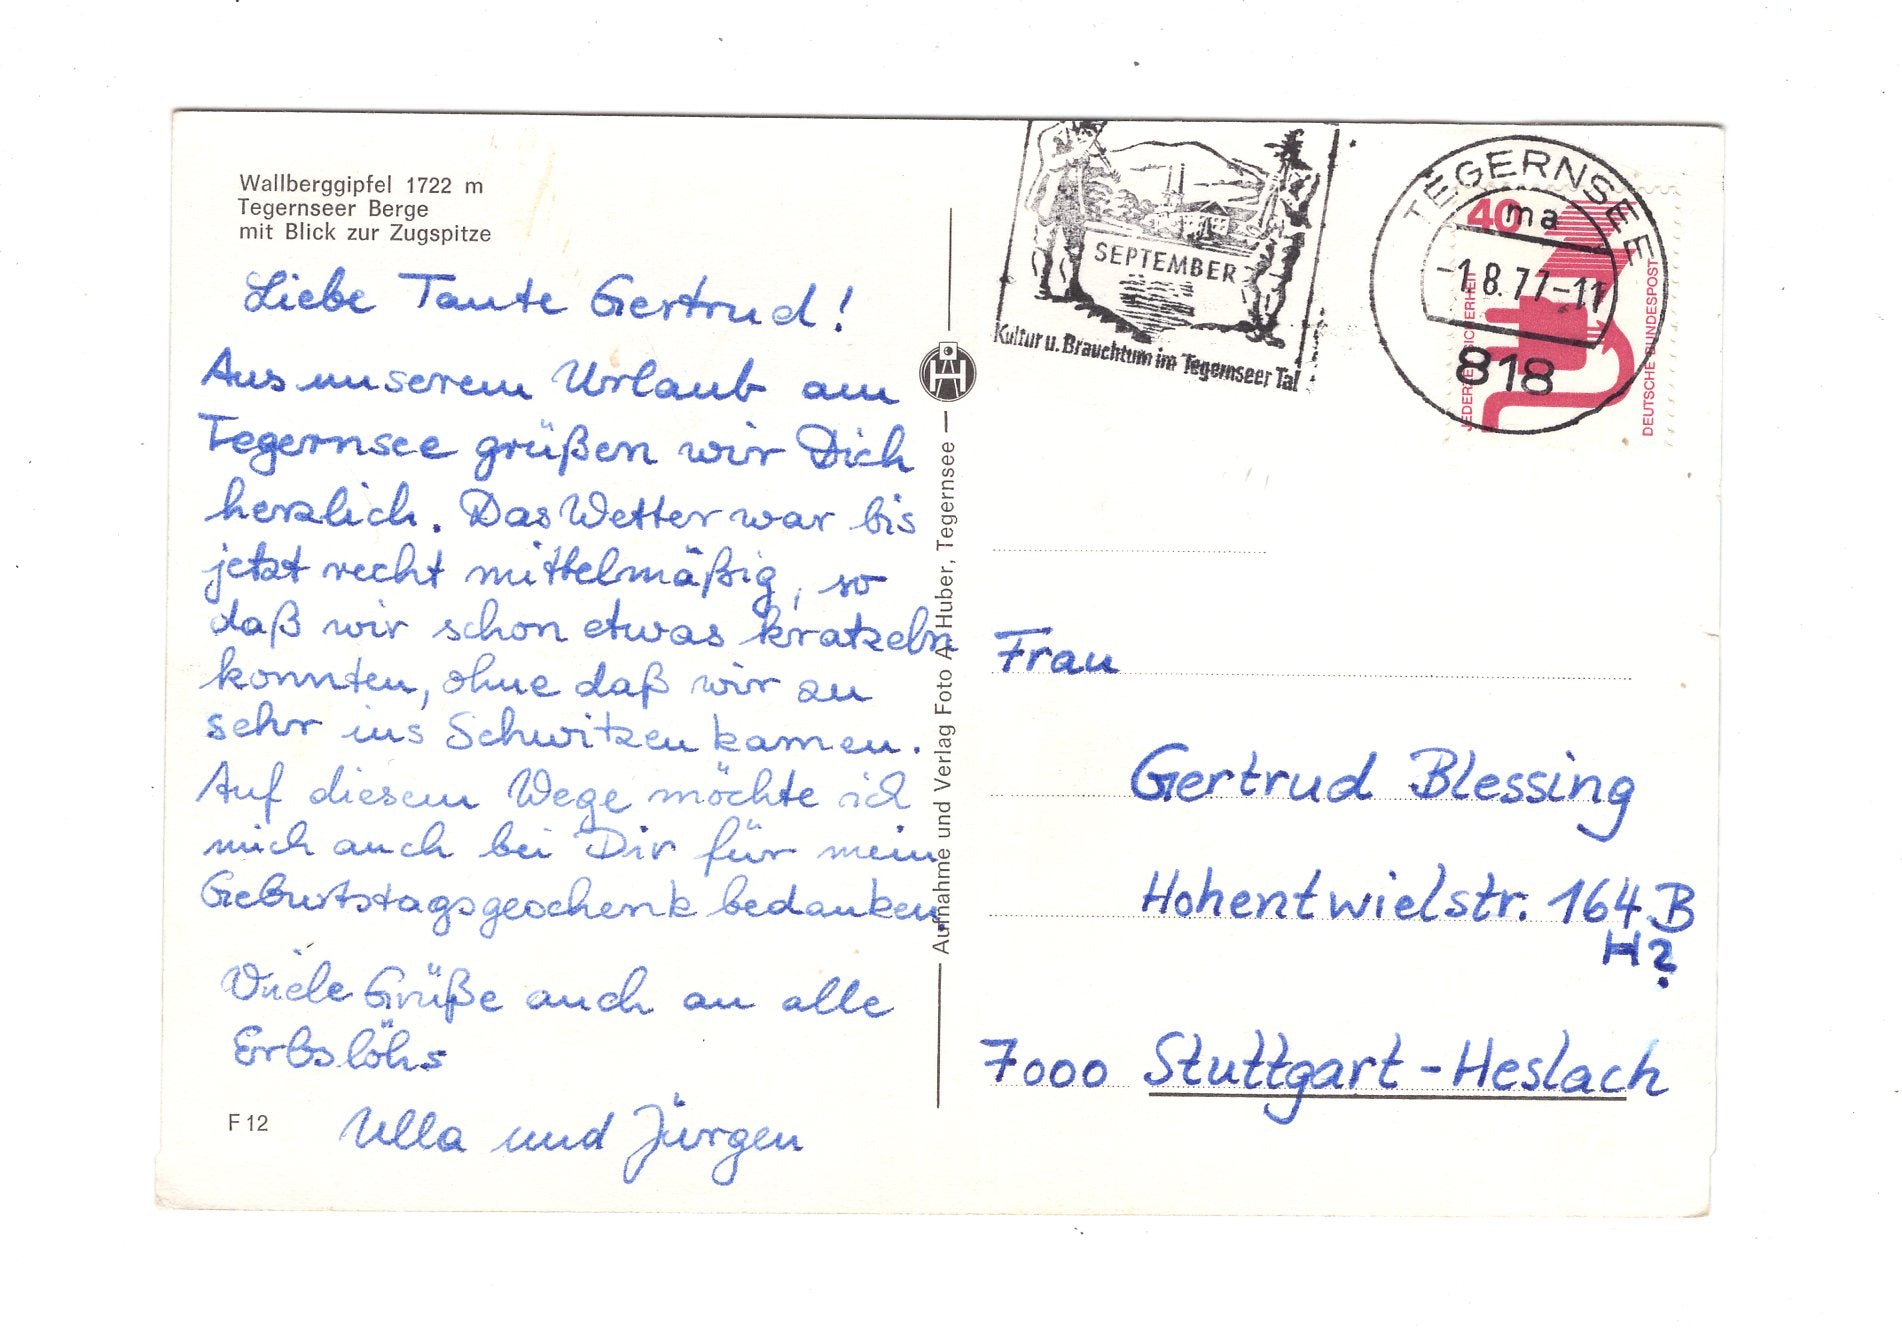 Wallberggipfel 1722 m
Tegernseer Berge
mit Blick zur Zugspitze
Liebe Tante Gertrud!
Aus unserem Urlaub am
Tegernsee grüßen wir Dich
herzlich. Das Wetter war bis
jetzt recht mittelmäßig, so
daß wir schon etwas kratzeln
konnten, ohne daß wir zu
sehr ins Schwitzen kamen.
Auf diesem Wege möchte ich
mich auch bei Dir für mein
Geburtstagsgeschenk bedanken.
Viele Grüße auch an alle
Erbslöhs
Ulla und Jürgen
F 12
Aufnahme und Verlag Foto A. Huber, Tegernsee
SEPTEMBER
Kultur u. Brauchtum im Tegernseer Tal
TEGERNSEE
ma
-1.8.77-11
818
40
JEDERZEIT SICHERHEIT
DEUTSCHE BUNDESPOST
Frau
Gertrud Blessing
Hohentwielstr. 164 B
H?
7000 Stuttgart-Heslach